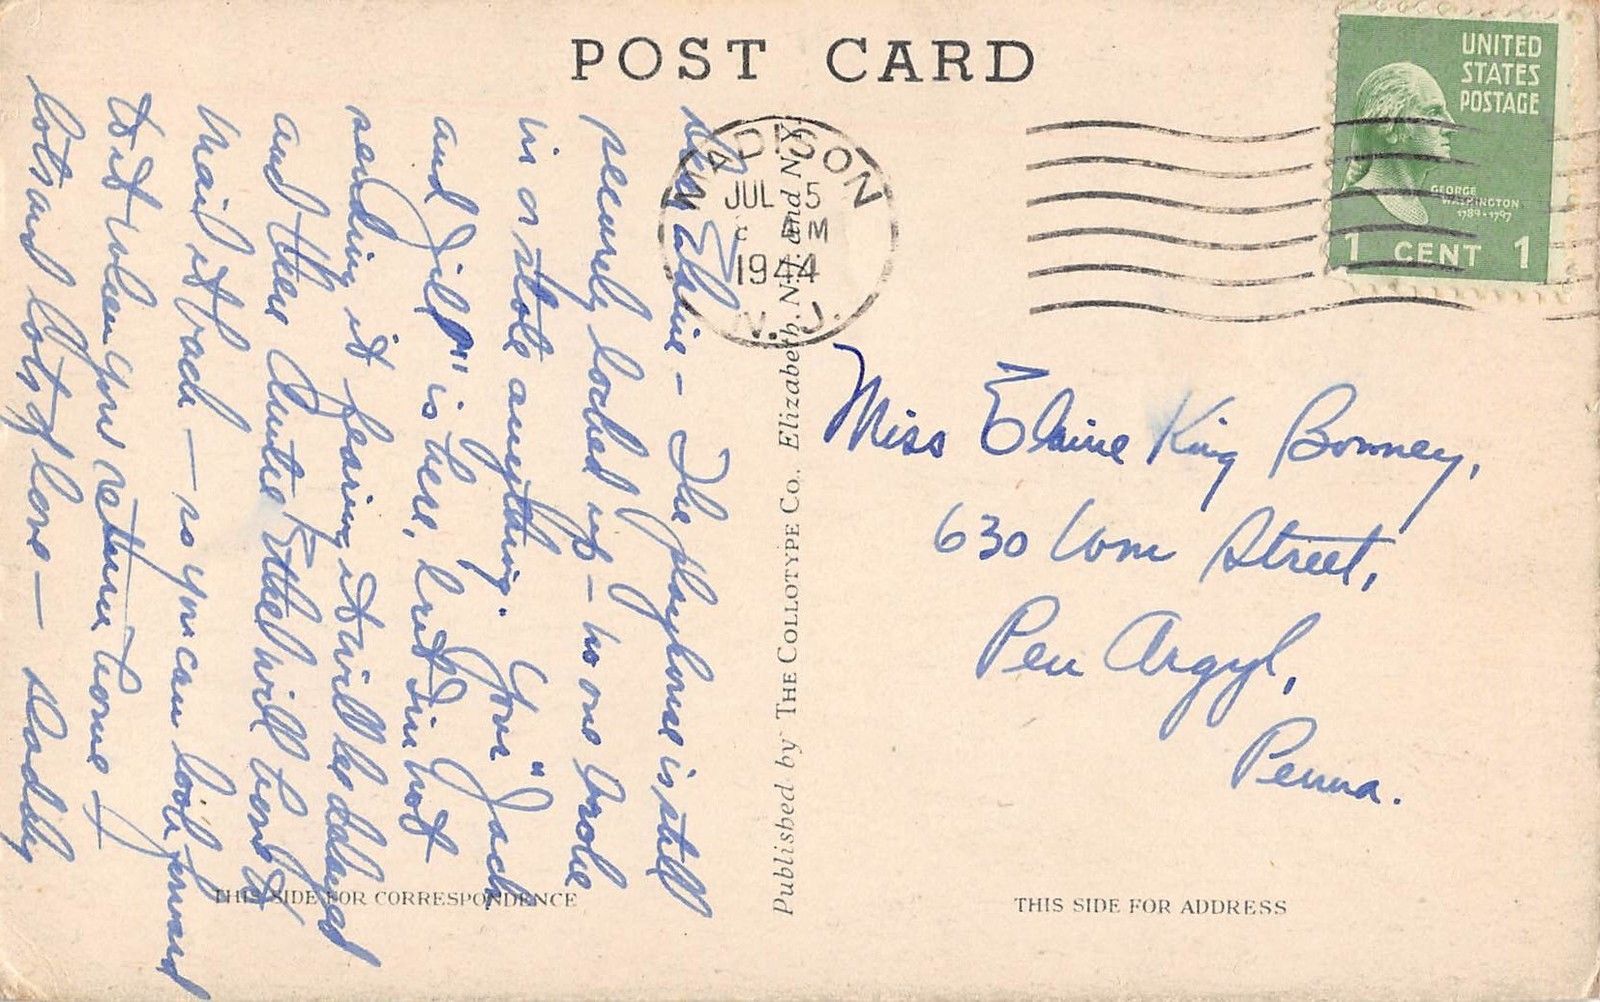 POST CARD
UNITED
STATES
POSTAGE
GEORGE
WASHINGTON
1789-1797
1 CENT 1
MADISON
JUL 5
PM
1944
N. J.
Dear Elaine - The playhouse is still
securely locked up - no one broke
in or stole anything. Your "Jack
and Jill" is here, but I'm not
sending it fearing it will be delayed
and then Auntie Ethel will have to
mail it back - so you can look forward
to it when you return home -
lots and lots of love - Daddy
Published by THE COLLOTYPE Co., Elizabeth, N.J. and N.Y.
Miss Elaine King Bonney,
630 Wm Street,
Pen Argyl,
Penna.
THIS SIDE FOR CORRESPONDENCE
THIS SIDE FOR ADDRESS